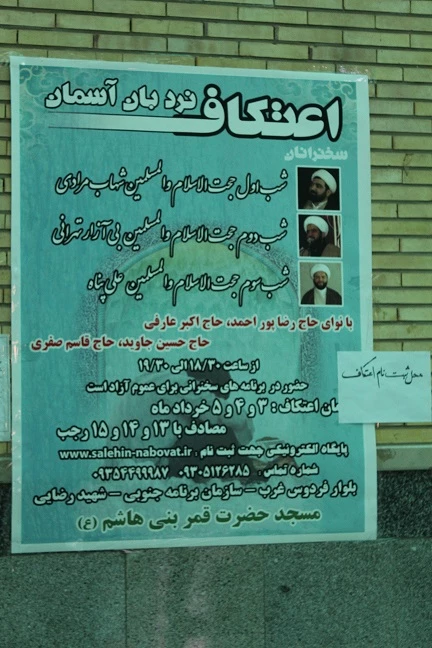 اعتکاف نردبان آسمان
سخنرانان
شب اول حجت الاسلام والمسلمین شهاب مرادی
شب دوم حجت الاسلام والمسلمین بی آزار تهرانی
شب سوم حجت الاسلام والمسلمین علی پناه
با نوای حاج رضا پور احمد، حاج اکبر عارفی
حاج حسین جاوید، حاج قاسم صفری
از ساعت ۱۸/۳۰ الی ۱۹/۳۰
حضور در برنامه های سخنرانی برای عموم آزاد است
مان اعتکاف : ۳ و ۴ و ۵ خرداد ماه
مصادف با ۱۳ و ۱۴ و ۱۵ رجب
پایگاه الکترونیکی جهت ثبت نام : www.salehin-nabovat.ir
شماره تماس : ۰۹۳۰۵۱۲۶۲۸۵ ۰۹۳۵۴۴۹۹۹۸۷
بلوار فردوس غرب - سازمان برنامه جنوبی - شهید رضایی
مسجد حضرت قمر بنی هاشم (ع)
محل ثبت نام اعتکاف